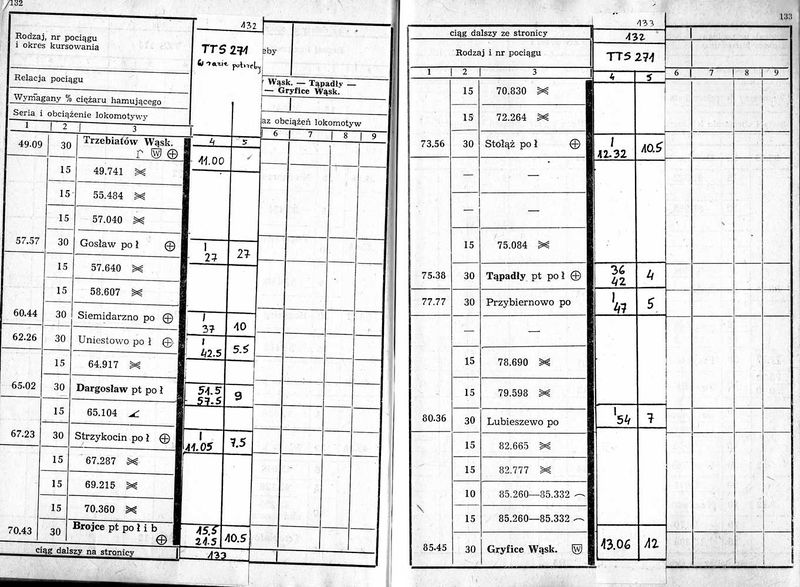 132
132
Rodzaj, nr pociągu
i okres kursowania
TTS 271
w razie potrzeby
eby
Relacja pociągu
Wąsk. — Tąpadły —
— Gryfice Wąsk.
Wymagany % ciężaru hamującego
Seria i obciążenie lokomotywy
az obciążeń lokomotyw
1 2 3 4 5 6 7 8 9
49.09 30 Trzebiatów Wąsk.
W 11.00
15 49.741
15 55.484
15 57.040
57.57 30 Gosław po ł I 27 27
15 57.640
15 58.607
60.44 30 Siemidarzno po I 37 10
62.26 30 Uniestowo po ł I 42.5 5.5
15 64.917
65.02 30 Dargosław pt po ł 51.5 57.5 9
15 65.104
67.23 30 Strzykocin po ł I 11.05 7.5
15 67.287
15 69.215
15 70.360
70.43 30 Brojce pt po ł i b 15.5 21.5 10.5
ciąg dalszy na stronicy 133
133
133
ciąg dalszy ze stronicy 132
Rodzaj i nr pociągu TTS 271
1 2 3 4 5 6 7 8 9
15 70.830
15 72.264
73.56 30 Stołąż po ł I 12.32 10.5
— —
— —
15 75.084
75.38 30 Tąpadły pt po ł 36 42 4
77.77 30 Przybiernowo po I 47 5
— —
15 78.690
15 79.598
80.36 30 Lubieszewo po I 54 7
15 82.665
15 82.777
10 85.260—85.332
15 85.260—85.332
85.45 30 Gryfice Wąsk. W 13.06 12